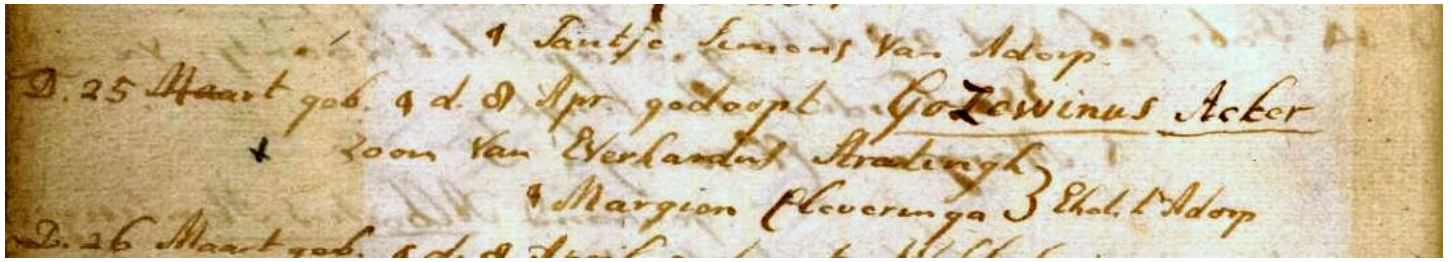 & Tautje Simons Van Adorp
D. 25 Maart geb. & d. 8 Apr. gedoopt Gozewinus Acker
Zoon Van Everhardus Stratingh
& Margien Cleveringa } Ehel. t' Adorp
D. 26 Maart geb. & d. 8 April